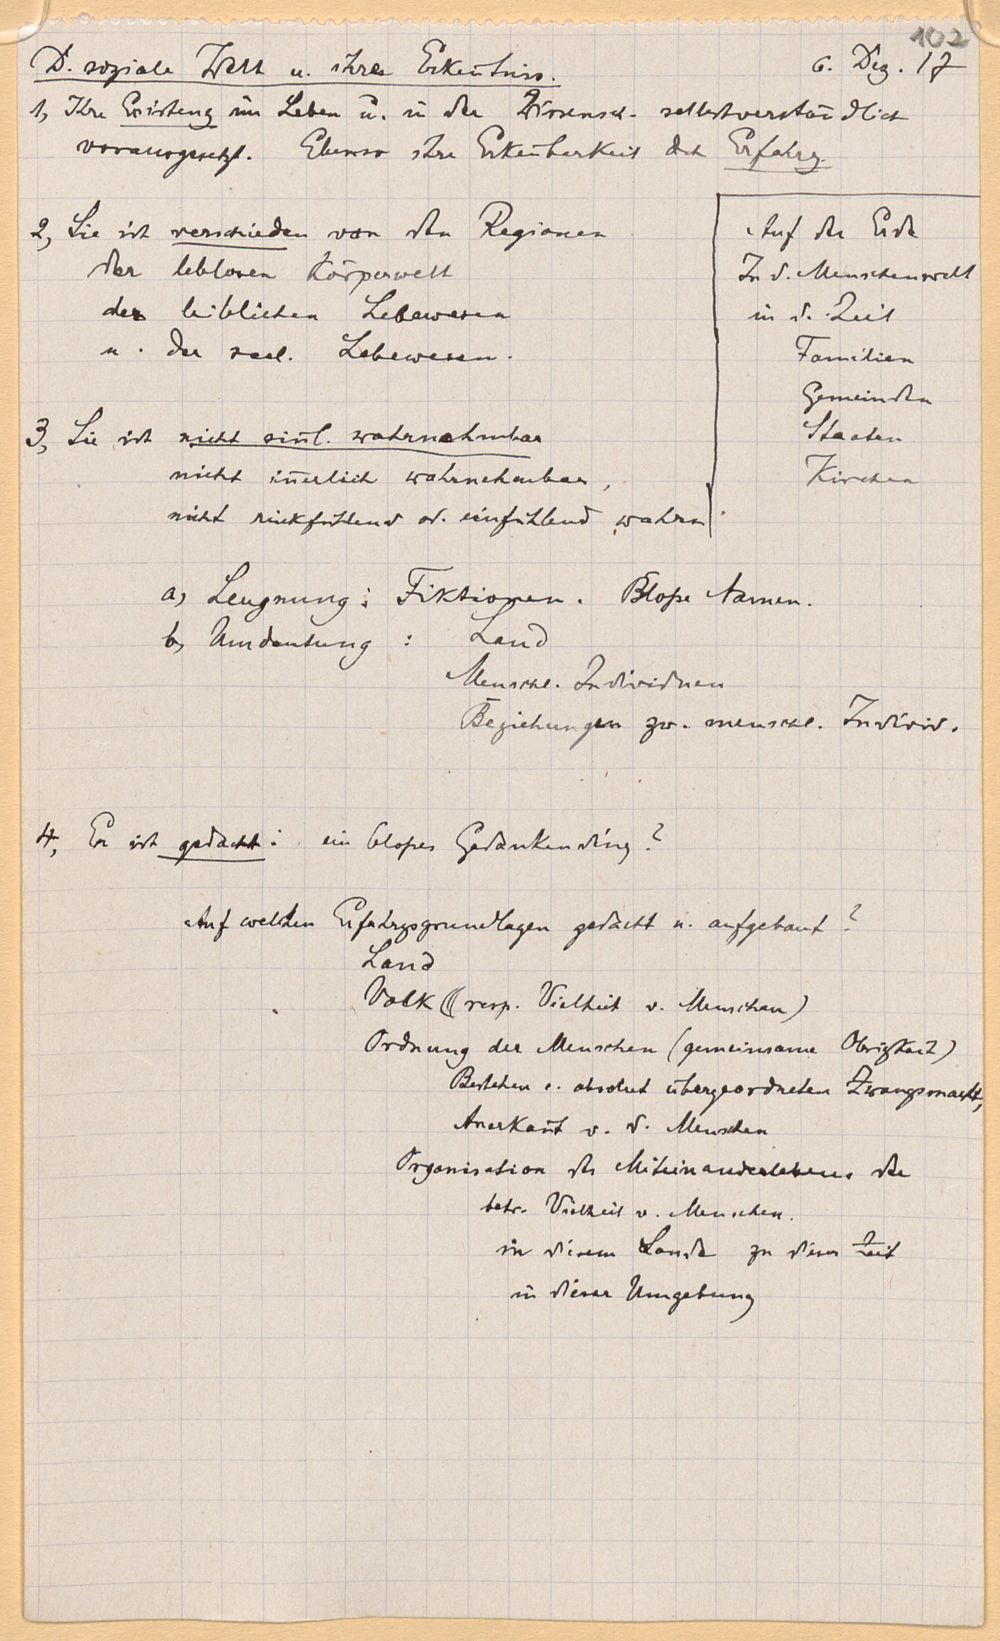 102
D. soziale Welt u. ihre Erkentniss. 6. Dez. 17
1, Ihre Existenz im Leben u. in der Wissensch. selbstverständlich
vorausgesetzt. Ebenso ihre Erkenbarkeit dch Erfahrg.
2, Sie ist verschieden von den Regionen
der leblosen Körperwelt
der leiblichen Lebewesen
u. der seel. Lebewesen.
Auf der Erde
In d. Menschenwelt
in d. Zeit
Familien
Gemeinden
Staaten
Kirchen
3, Sie ist nicht sinl. wahrnehmbar
nicht inerlich wahrnehmbar,
nicht rückfühlend od. einfühlend wahrn.
a, Leugnung: Fiktionen. Bloße Namen.
b, Umdeutung: Land
Menschl. Individuen
Beziehungen zw. menschl. Individ.
4, Er ist gedacht: ein bloßes Gedankending?
Auf welchen Erfahrgsgrundlagen gedacht u. aufgebaut?
Land
Volk (resp. Vielheit v. Menschen)
Ordnung der Menschen (gemeinsame Obrigkeit)
Bestehen e. absolut übergeordneten Zwangsmacht,
Anerkant v. d. Menschen
Organisation des Miteinanderlebens der
betr. Vielheit v. Menschen.
in diesem Lande zu dieser Zeit
in dieser Umgebung